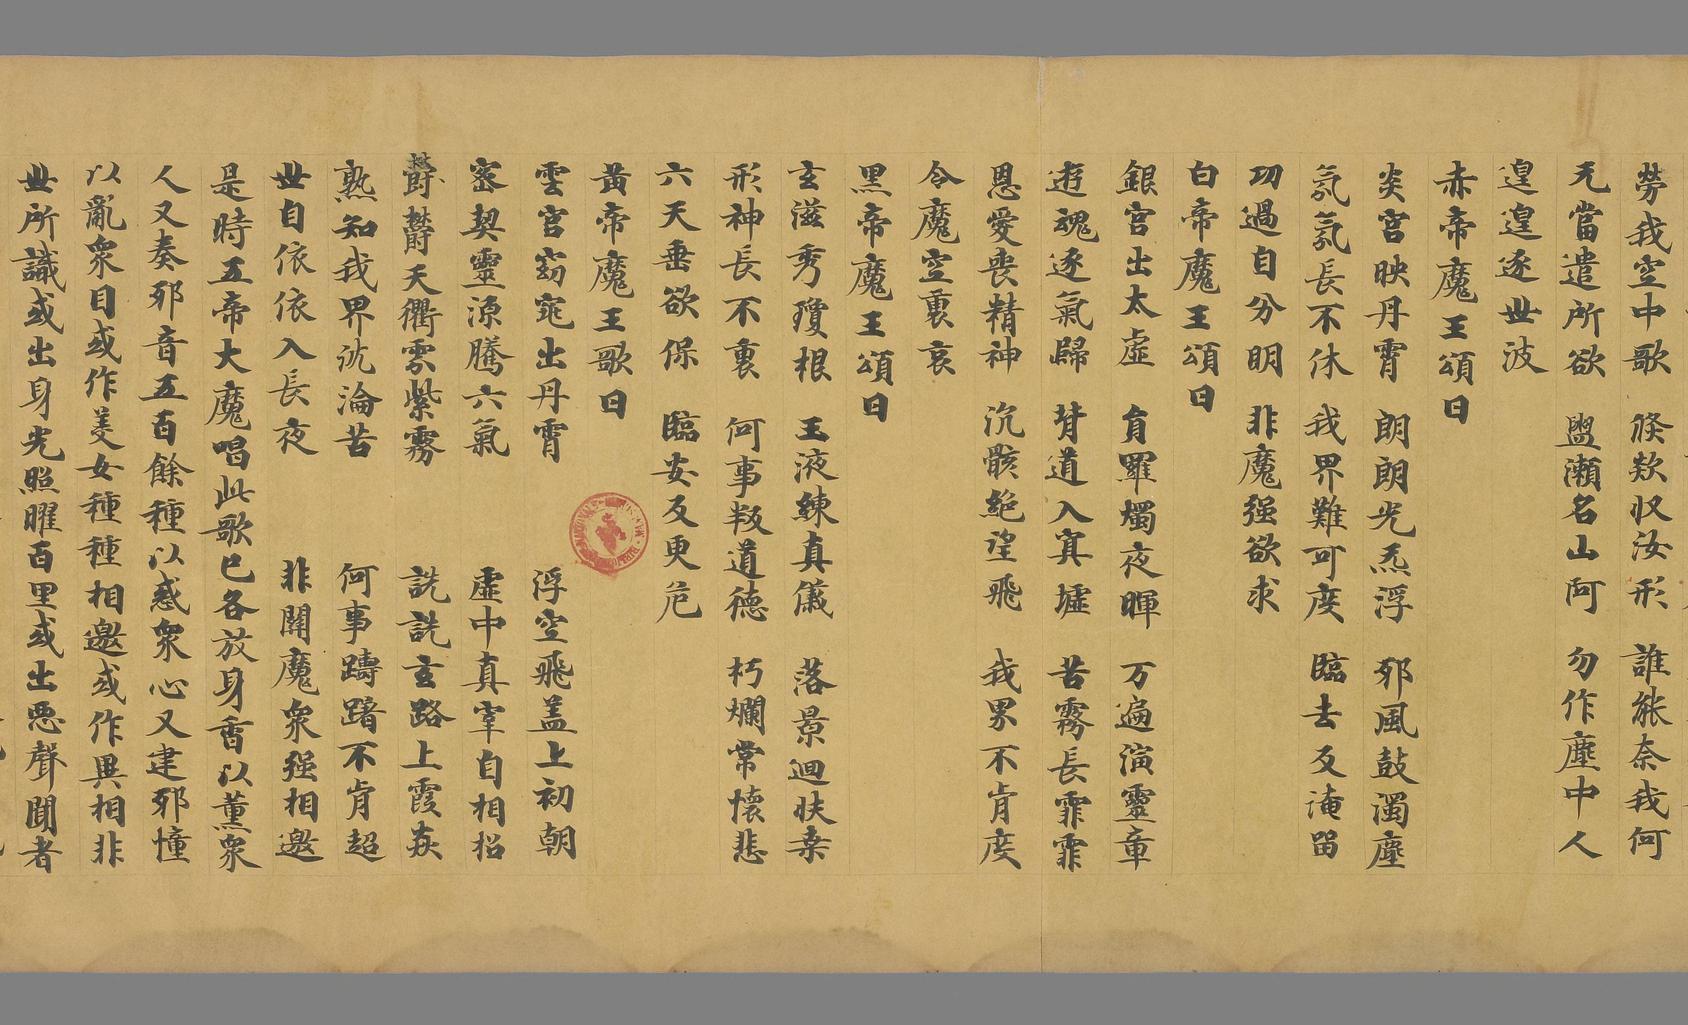 勞我空中歌 倏欻収汝形 誰能奈我何
充當遣所欲 盥瀨名山阿 勿作塵中人
遑遑逐世波
赤帝魔王頌曰
炎宮映丹霄 朗朗光炁浮 邪風鼓濁塵
氛氛長不休 我界難可度 臨去反淹留
功過自分明 非魔强欲求
白帝魔王頌曰
銀宮出太虛 育羅燭夜暉 万遍演靈章
遊魂逐氣歸 背道入冥墟 苦霧長霏霏
恩愛喪精神 沉骸絕望飛 我界不肯度
令魔空裏哀
黑帝魔王頌曰
玄滋秀瓊根 玉液練真儀 落景迴扶桒
形神長不裏 何事叛道德 朽爛常懷悲
六天垂欲保 臨安反更危
黃帝魔王歌曰
雲宮窈窕出丹霄 浮空飛蓋上初朝
密契靈源騰六氣 虛中真宰自相招
欝欝天衢雰紫霧 詵詵玄路上霞焱
熟知我界沈淪苦 何事躊躇不肯超
世自依依入長夜 非關魔衆强相邀
是時五帝大魔唱此歌已各放身香以薰衆
人又奏邪音五百餘種以惑衆心又建邪憧
以亂衆目或作美女種種相邀或作異相非
世所識或出身光照曜百里或出惡聲聞者